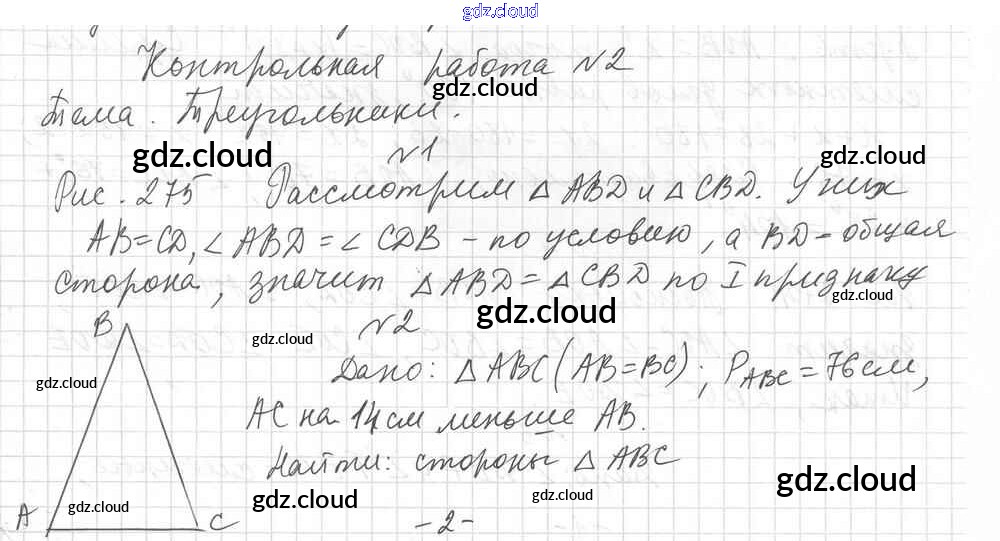 gdz.cloud
Контрольная работа №2
gdz.cloud
Тема. Треугольники.
gdz.cloud
№1
gdz.cloud
Рис. 275 Рассмотрим △ ABD и △ CBD. У них
AB=CD, ∠ ABD = ∠ CDB - по условию, а BD - общая
сторона, значит △ ABD = △ CBD по I признаку
gdz.cloud
gdz.cloud
№2
gdz.cloud
B
Дано: △ ABC (AB=BC); P_ABC = 76 см,
gdz.cloud
AC на 14 см меньше AB.
Найти: стороны △ ABC
gdz.cloud
gdz.cloud
gdz.cloud
gdz.cloud
A C
-2-